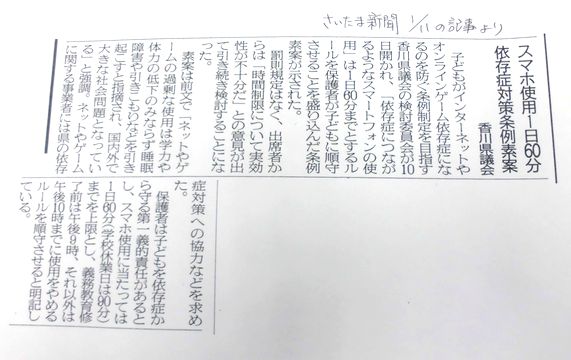 さいたま新聞 1/11の記事より
スマホ使用1日60分
依存症対策条例素案
香川県議会
子どもがインターネットや
オンラインゲーム依存症にな
るのを防ぐ条例制定を目指す
香川県議会の検討委員会が10
日開かれ、「依存症につなが
るようなスマートフォンの使
用」は1日60分までとするル
ールを保護者が子どもに順守
させることを盛り込んだ条例
素案が示された。
罰則規定はなく、出席者か
らは「時間制限について実効
性が不十分だ」との意見が出
て引き続き検討することにな
った。
素案は前文で「ネットやゲ
ームの過剰な使用は学力や
体力の低下のみならず睡眠
障害や引きこもりなどを引き
起こすと指摘され、国内外で
大きな社会問題となってい
る」と強調。ネットやゲーム
に関する事業者には県の依存
症対策への協力などを求め
た。
保護者は子どもを依存症か
ら守る第一義的責任があると
し、スマホ使用に当たっては
1日60分(学校休業日は90分)
までを上限とし、義務教育修
了前は午後9時、それ以外は
午後10時までに使用をやめる
ルールを順守させると明記し
ている。